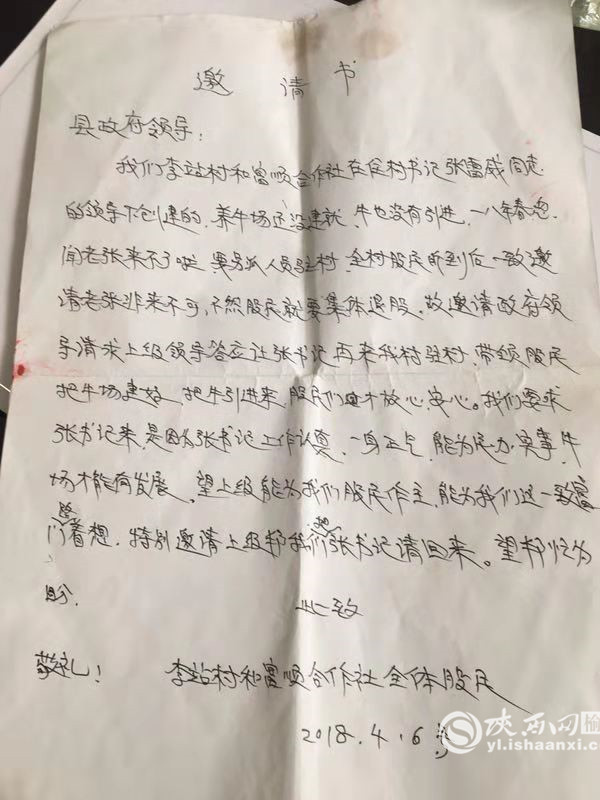 邀请书
县政府领导:
我们李站村和富顺合作社在在村书记张雷威同志
的领导下创建的,养牛场还没建就,牛也没有引进,一八年春忽
闻老张来不了啦 要另派人员驻村,全村股民听到后一致邀
请老张非来不可,不然股民就要集体退股。故邀请政府领
导请求上级领导答应让张书记再来我村驻村,带领股民
把牛场建好 把牛引进来,股民们才放心,安心。我们要求
张书记来,是因为张书记工作认真,一身正气,能为民办实事,牛
场才能有发展。望上级能为我们股民作主,能为我们这一致富
门路着想,特别邀请上级帮我们把张书记请回来。望帮忙为
盼.
此致
敬礼! 李站村和富顺合作社全体股民
2018.4.6号
陕西网 榆
yl.ishaanxi.c